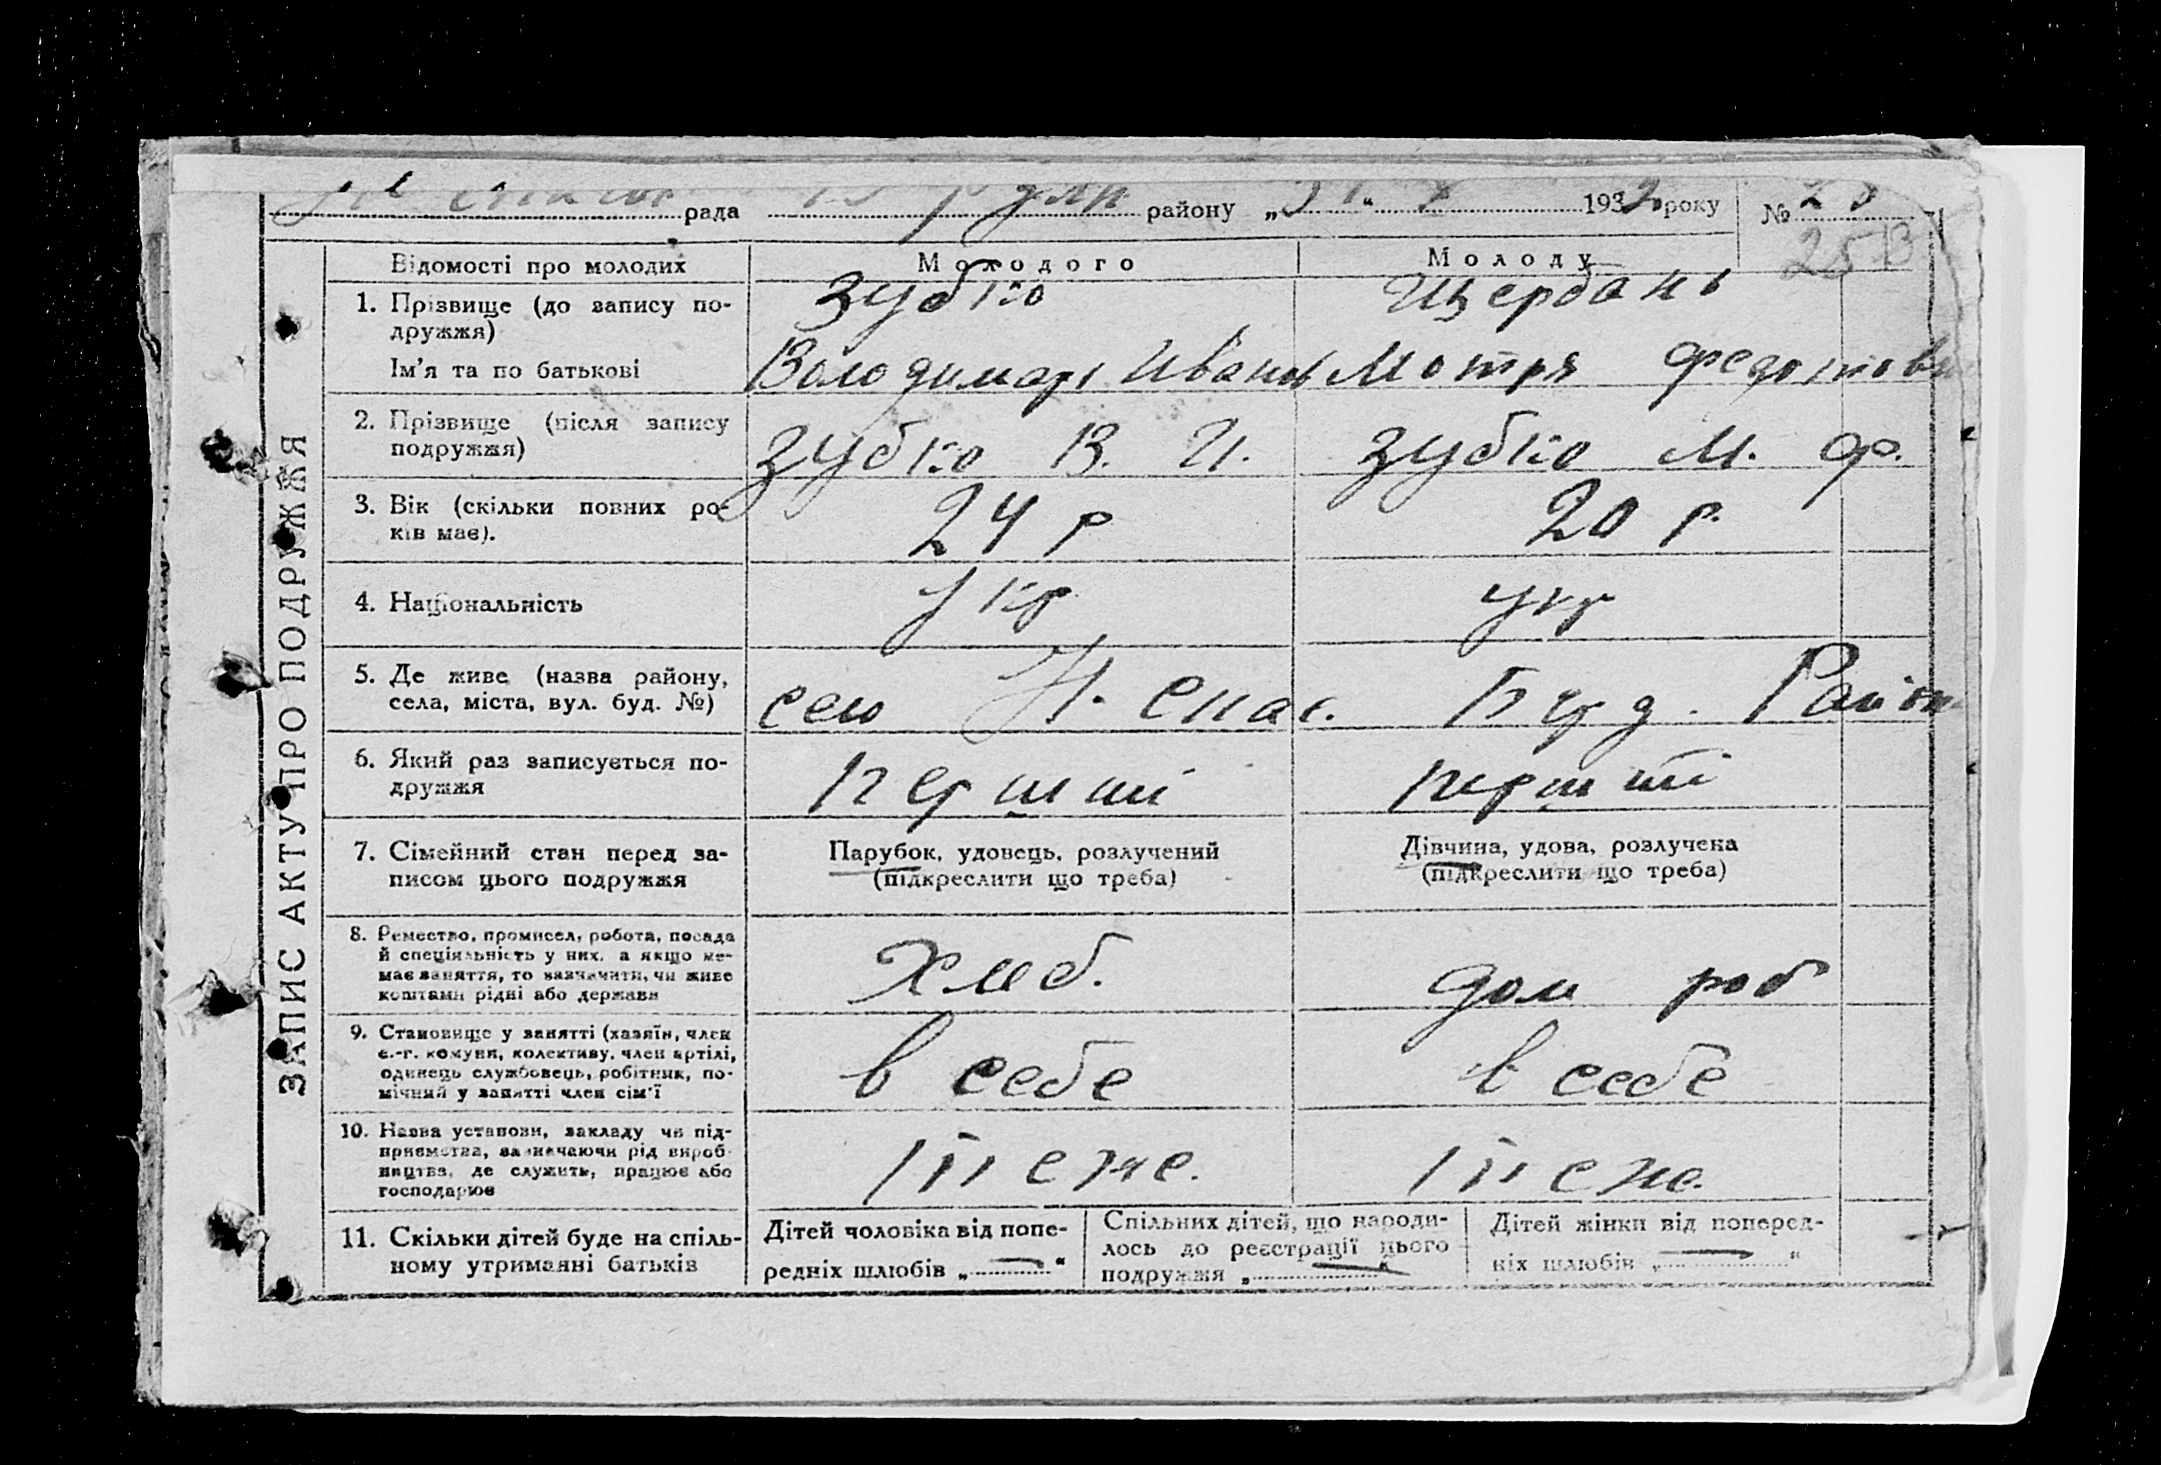 рада району „ “ 193 року №
25В
Відомості про молодих Молодого Молоду
1. Прізвище (до запису по-
дружжя) Зубко Щербань
Ім'я та по батькові Володимар Иванов Мотря Федотовн
2. Прізвище (після запису
подружжя) Зубко В. И. Зубко М. Ф.
3. Вік (скільки повних ро-
ків має). 24 р 20 р.
4. Національність Укр укр
5. Де живе (назва району,
села, міста, вул. буд. №) село Н. Спас. Район
6. Який раз записується по-
дружжя перший перший
7. Сімейний стан перед за-
писом цього подружжя
Парубок, удовець, розлучений
(підкреслити що треба)
Дівчина, удова, розлучена
(підкреслити що треба)
8. Ремество, промисел, робота, посада
й спеціяльність у них, а якщо не-
має заняття, то зазначити, чи живе
коштами рідні або держави
Хліб. дом роб
9. Становище у занятті (хазяїн, член
с.-г. комуни, колективу, член артілі,
одинець службовець, робітник, по-
мічний у занятті член сім'ї
в себе в себе
10. Назва установи, закладу чи під-
приємства, зазначаючи рід вироб-
ництва, де служить, працює або
господарює
теже. теже.
11. Скільки дітей буде на спіль-
ному утриманні батьків
Дітей чоловіка від попе-
редніх шлюбів „ — “
Спільних дітей, що народи-
лось до реєстрації цього
подружжя „ — “
Дітей жінки від поперед-
ніх шлюбів „ — “
ЗАПИС АКТУ ПРО ПОДРУЖЖЯ